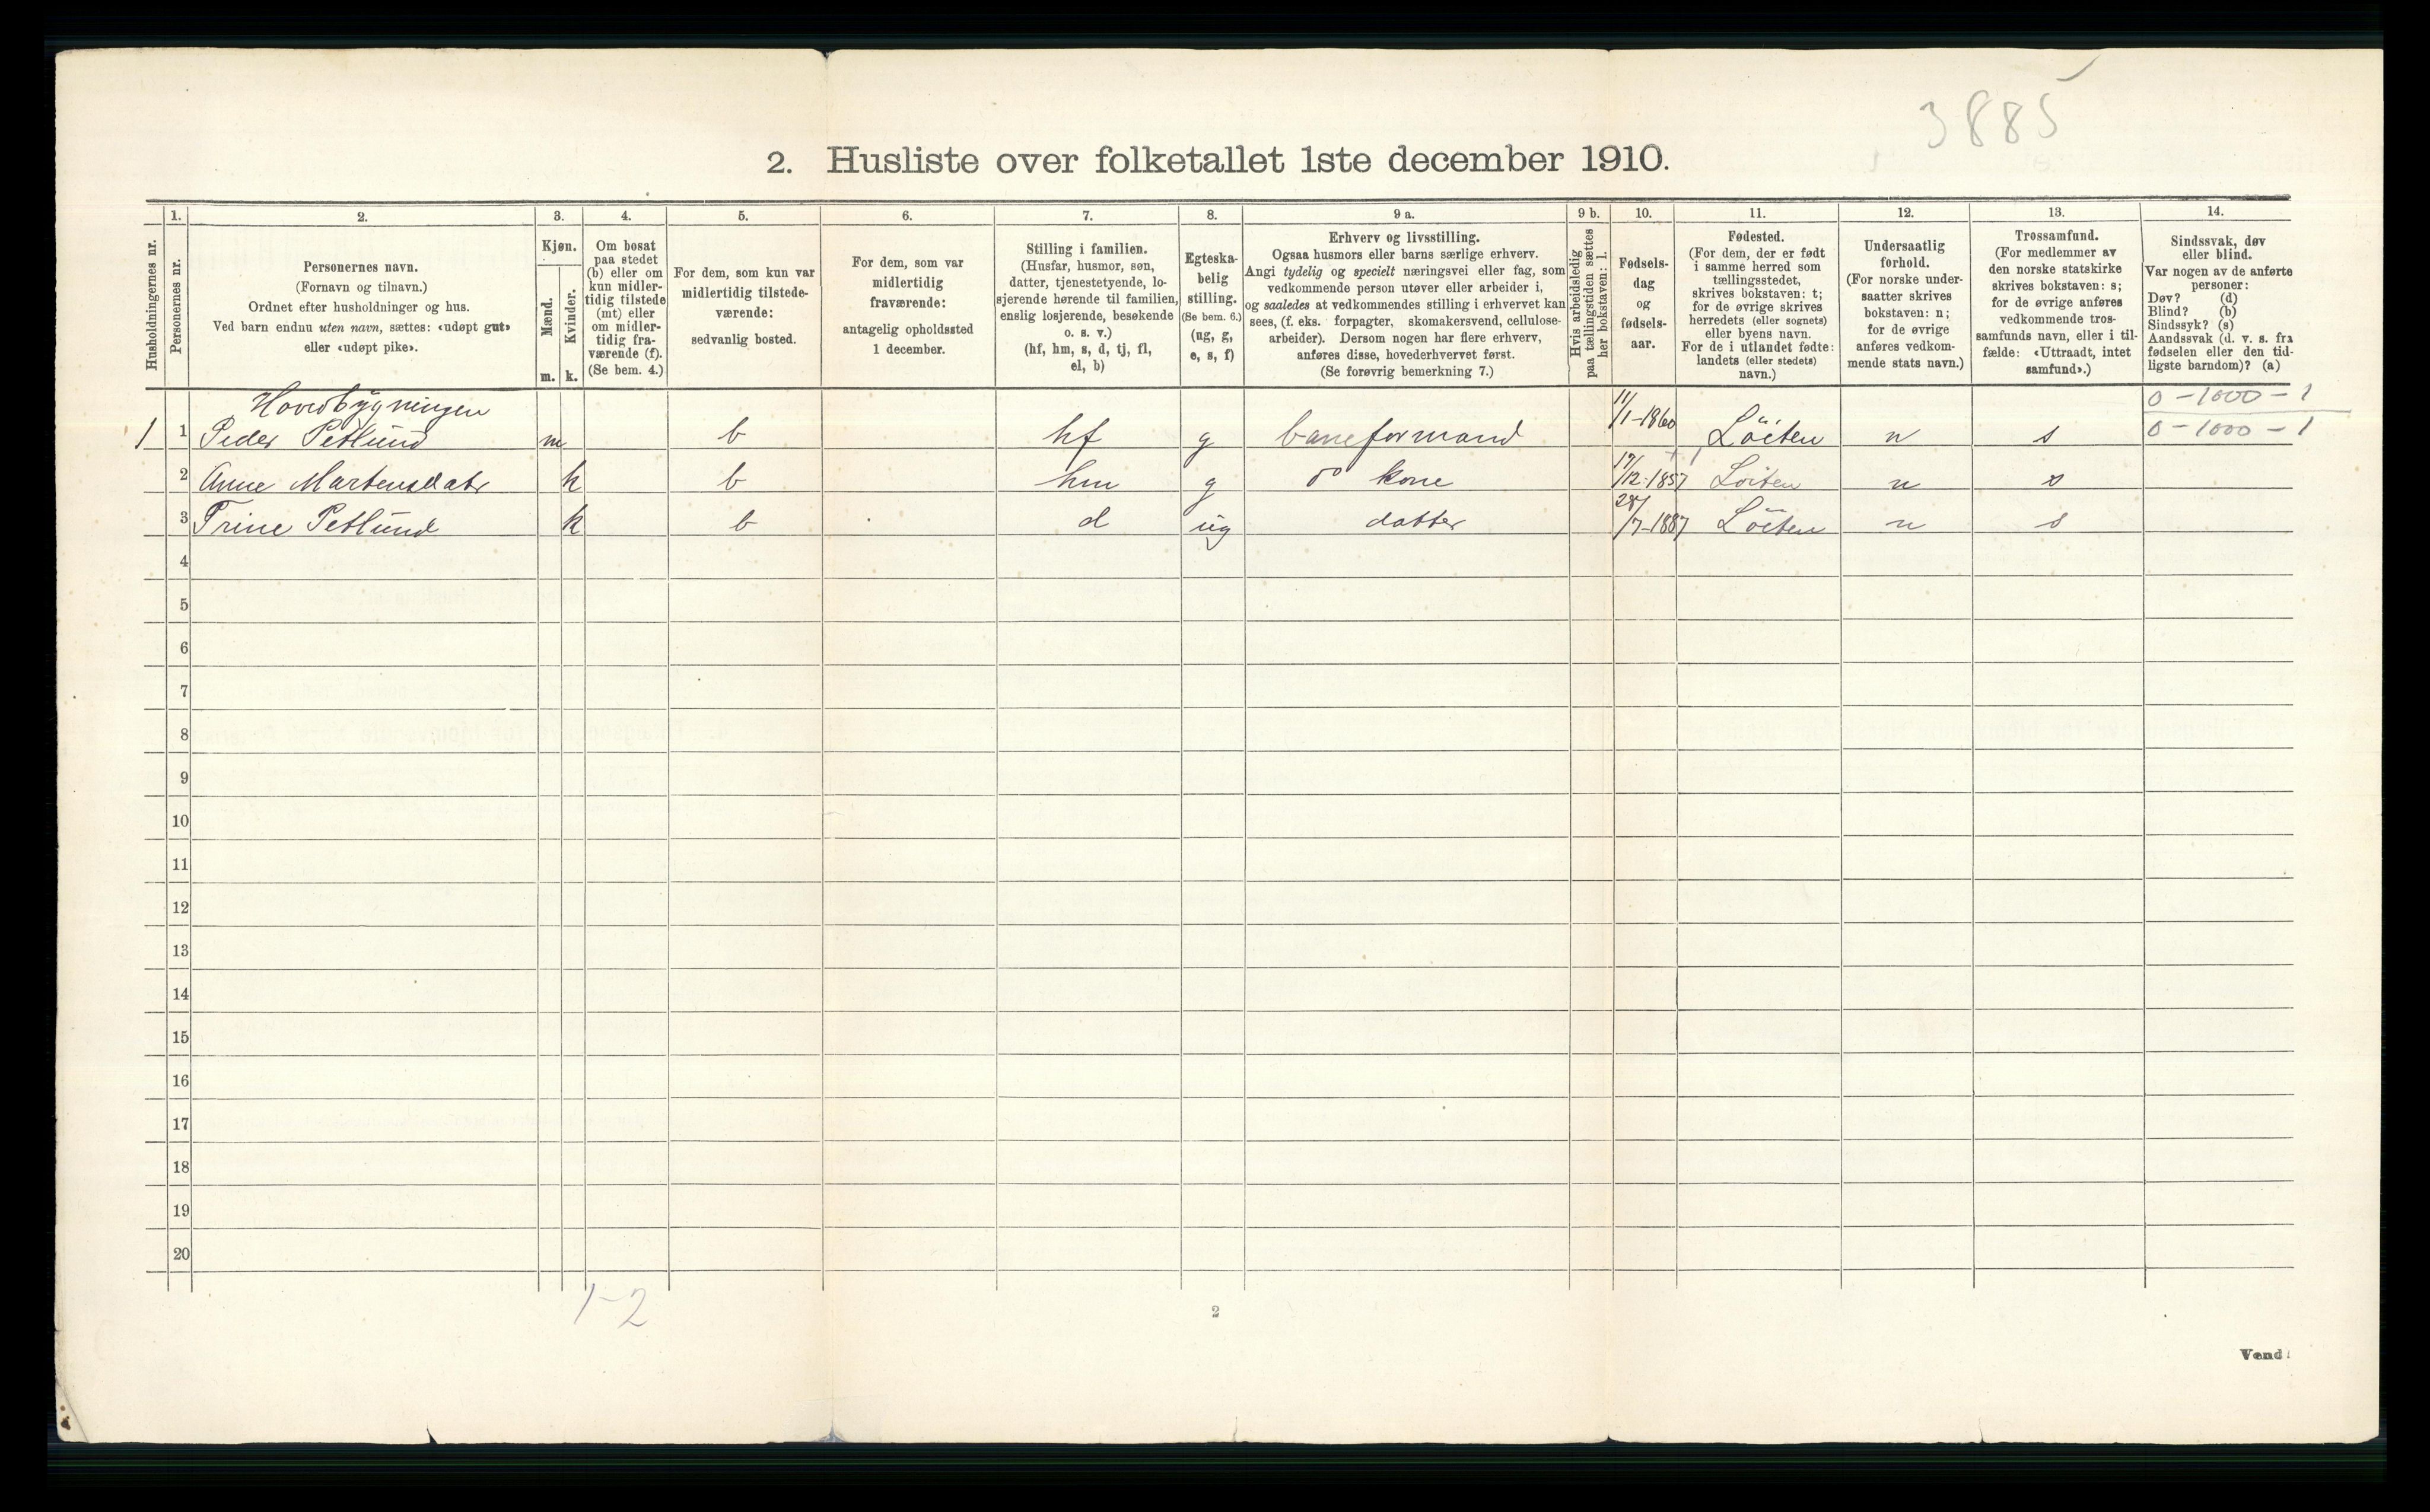 3885
2. Husliste over folketallet 1ste december 1910.
Husholdningernes nr.
1.
Personernes nr.
2.
Personernes navn.
(Fornavn og tilnavn.)
Ordnet efter husholdninger og hus.
Ved barn endnu uten navn, sættes: «udøpt gut»
eller «udøpt pike».
3.
Kjøn.
Mænd.
m.
Kvinder.
k.
4.
Om bosat
paa stedet
(b) eller om
kun midler-
tidig tilstede
(mt) eller
om midler-
tidig fra-
værende (f).
(Se bem. 4.)
5.
For dem, som kun var
midlertidig tilstede-
værende:
sedvanlig bosted.
6.
For dem, som var
midlertidig
fraværende:
antagelig opholdssted
1 december.
7.
Stilling i familien.
(Husfar, husmor, søn,
datter, tjenestetyende, lo-
sjerende hørende til familien,
enslig losjerende, besøkende
o. s. v.)
(hf, hm, s, d, tj, fl,
el, b)
8.
Egteska-
belig
stilling.
(Se bem. 6.)
(ug, g,
e, s, f)
9 a.
Erhverv og livsstilling.
Ogsaa husmors eller barns særlige erhverv.
Angi tydelig og specielt næringsvei eller fag, som
vedkommende person utøver eller arbeider i,
og saaledes at vedkommendes stilling i erhvervet kan
sees, (f. eks. forpagter, skomakersvend, cellulose-
arbeider). Dersom nogen har flere erhverv,
anføres disse, hovederhvervet først.
(Se forøvrig bemerkning 7.)
9 b.
Hvis arbeidsledig
paa tællingstiden sættes
her bokstaven: l.
10.
Fødsels-
dag
og
fødsels-
aar.
11.
Fødested.
(For dem, der er født
i samme herred som
tællingsstedet,
skrives bokstaven: t;
for de øvrige skrives
herredets (eller sognets)
eller byens navn.
For de i utlandet fødte:
landets (eller stedets)
navn.)
12.
Undersaatlig
forhold.
(For norske under-
saatter skrives
bokstaven: n;
for de øvrige
anføres vedkom-
mende stats navn.)
13.
Trossamfund.
(For medlemmer av
den norske statskirke
skrives bokstaven: s;
for de øvrige anføres
vedkommende tros-
samfunds navn, eller i til-
fælde: «Uttraadt, intet
samfund».)
14.
Sindssvak, døv
eller blind.
Var nogen av de anførte
personer:
Døv? (d)
Blind? (b)
Sindssyk? (s)
Aandssvak (d. v. s. fra
fødselen eller den tid-
ligste barndom)? (a)
Hovedbygningen
0 - 1000 - 1
1 1 Peder Petlund m b hf g baneformand 11/1-1860 Löiten n s 0 - 1000 - 1
2 Anne Martensdatr k b hm g do kone 17/12-1857 Löiten n s
3 Trine Petlund k b d ug datter 28/7-1887 Löiten n s
4
5
6
7
8
9
10
11
12
13
14
15
16
17
18
19
20
1-2
2
Vend!